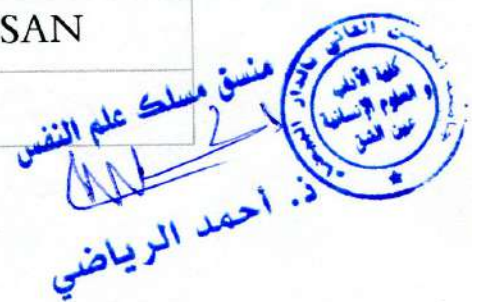 SAN
منسق مسلك علم النفس
ذ. أحمد الرياضي
الحسن الثاني بالدار البيضاء
كلية الآداب
و العلوم الإنسانية
عين الشق